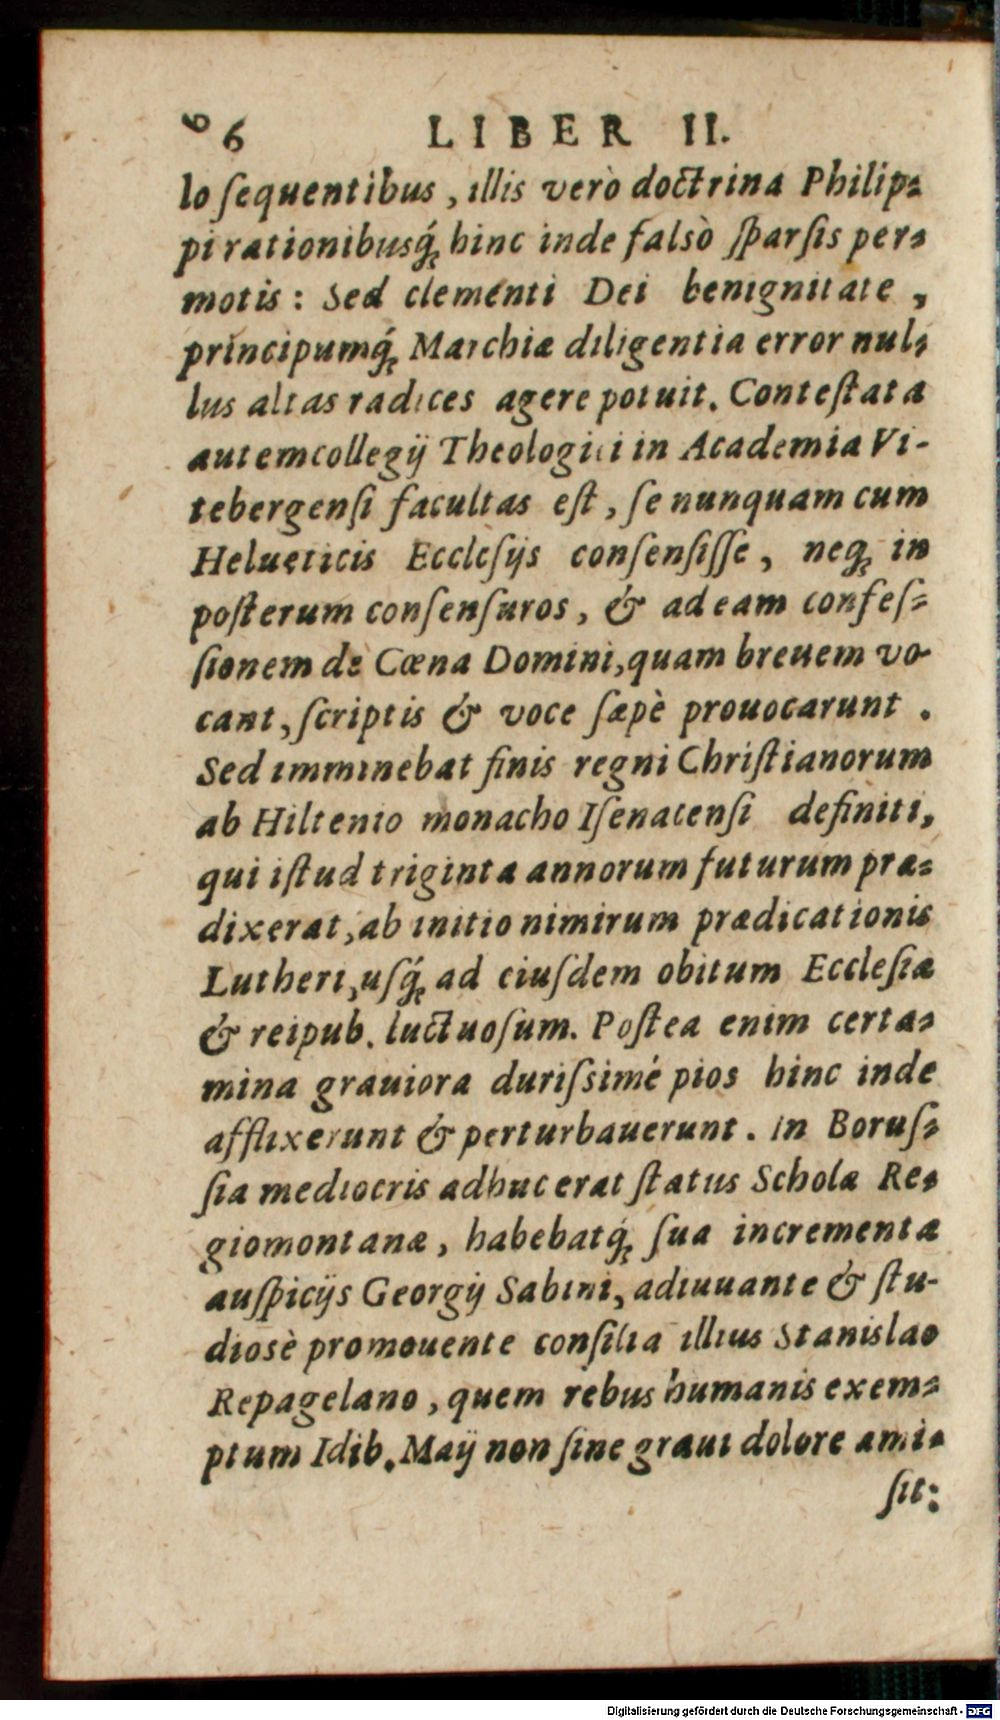 66 LIBER II.
lo ſequentibus, illis verò doctrina Philip⸗
pi rationibusq́ue hinc inde falsò ſparſis per⸗
motis: Sed clementi Dei benignitate,
principumq́ue Marchiæ diligentia error nul⸗
lus altas radices agere potuit. Conteſtata
autem collegij Theologici in Academia Vi-
tebergenſi facultas eſt, ſe nunquam cum
Helueticis Eccleſijs conſenſiſſe, neqꝫ in
poſterum conſenſuros, & ad eam confeſ⸗
ſionem de Cœna Domini, quam breuem vo-
cant, ſcriptis & voce ſæpè prouocarunt.
Sed imminebat finis regni Chriſtianorum
ab Hiltenio monacho Iſenacenſi definiti,
qui iſtud triginta annorum futurum præ⸗
dixerat, ab initio nimirum prædicationis
Lutheri, uſq́ꝫ ad eiuſdem obitum Eccleſiæ
& reipub. luctuoſum. Poſtea enim certa⸗
mina grauiora duriſsimé pios hinc inde
afflixerunt & perturbauerunt. In Boruſ⸗
ſia mediocris adhuc erat ſtatus Scholæ Re⸗
giomontanæ, habebatq́ꝫ ſua incrementa
auſpicijs Georgij Sabini, adiuuante & ſtu-
diosè promouente conſilia illius Stanislao
Repagelano, quem rebus humanis exem⸗
ptum Idib. Maij non ſine graui dolore ami⸗
ſit:
Digitalisierung gefördert durch die Deutsche Forschungsgemeinschaft - DFG